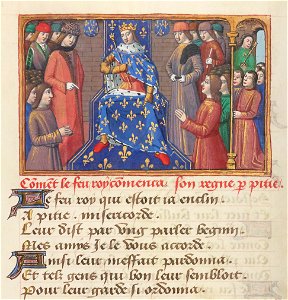 Com̄et le feu roy com̄enca son regne p pitie.
Le feu roy qui estoit ia enclin.
A pitie. misericorde.
Leur dist par ung parler begnin
Mes amys Je le vous accorde.
Ainsi leur meffait pardonna.
Et tel gens qui bon leur sembloit.
Pour leur garde si ordonna.